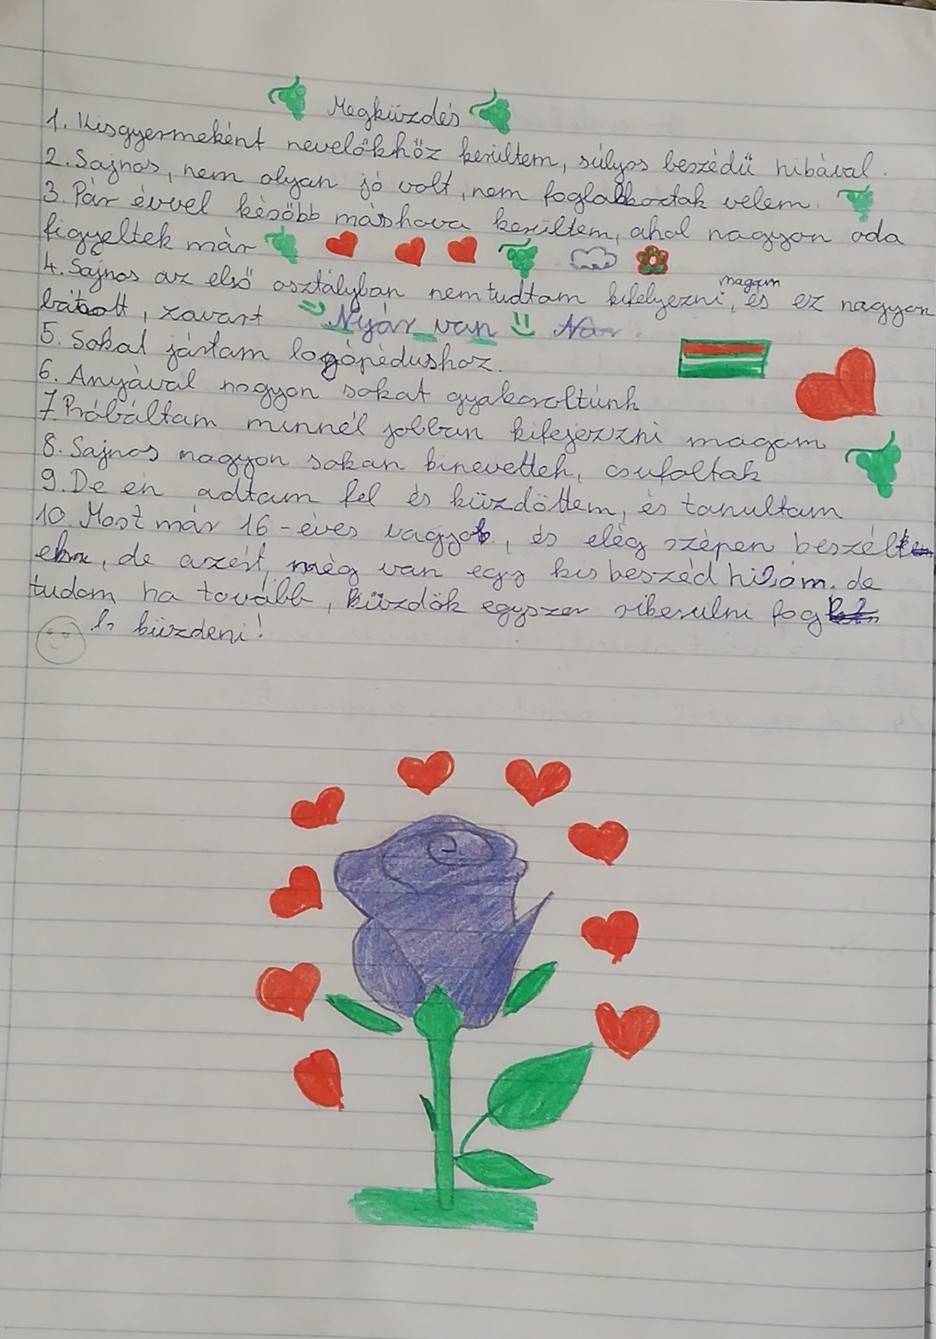 Megküzdés
1. Kisgyermeként nevelőkhöz kerültem, súlyos beszédű hibával.
2. Sajnos, nem olyan jó volt, nem foglalkoztak velem.
3. Pár évvel késöbb máshova kerültem, ahol nagyon oda
figyeltek már
4. Sajnos az első osztályban nem tudtam kifelyezni magam, és ez nagyon
bátott, zavart Nyár van
5. Sokal jártam logopédushoz.
6. Anyával nagyon sokat gyakoroltunk
7. Próbáltam minnél jobban kifejezni magam
8. Sajnos nagyon sokan kinevettek, csufoltak
9. De én adtam fel és küzdöttem, és tanultam
10. Most már 16-éves vagyok, és elég szépen beszél
de azért még van egy kis beszéd hibám. de
tudom ha tovább, küzdök egyszer sikerülni fog
és küzdeni!